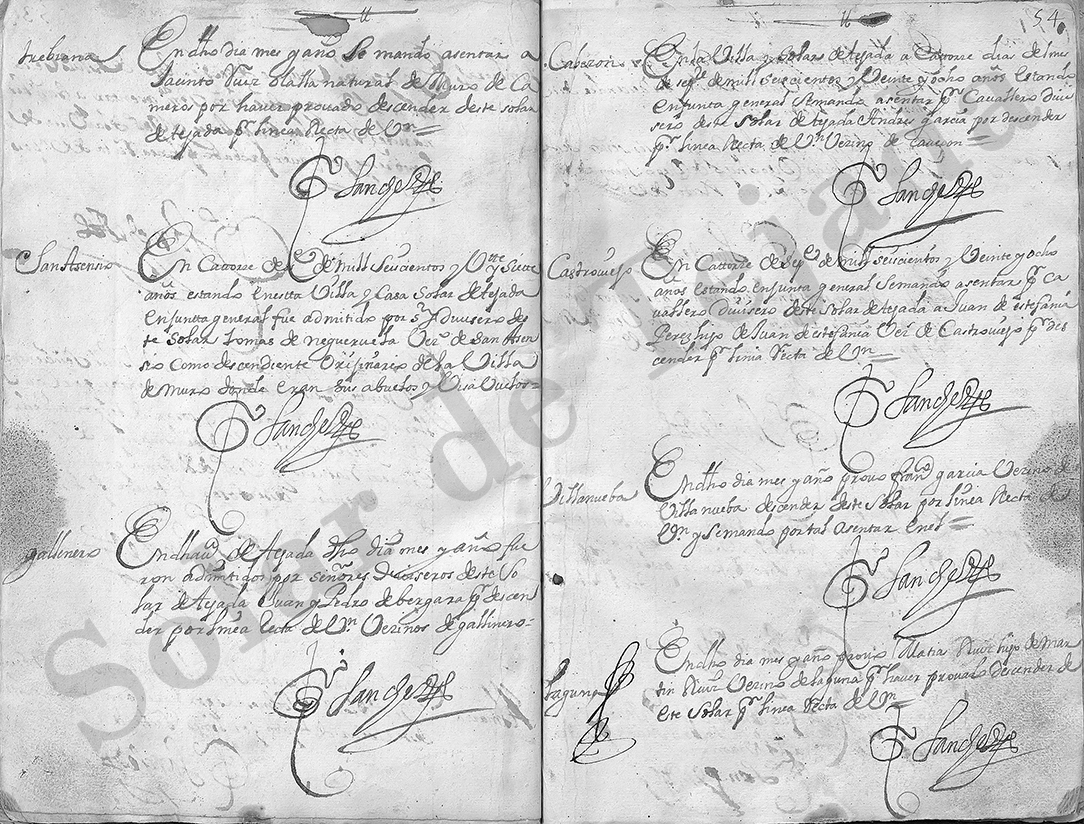 trebiana
En dho dia mes y año se mando asentar a
Jacinto Ruiz olalla natural de Muro de Ca
meros por haver provado descender deste solar
de tejada pr linea Recta de Vn
Sanchez
San Asensio
En Cattorze de de mill Seiscientos y Vte y Siete
años estando Enesta Villa y Casa Solar de tejada
en junta general fue admitido por sr Diuisero des
te Solar tomas de negueruela Vezo de San Asen
sio Como descendiente Orijinario de la Villa
de Muro donde eran sus abuelos y Visabuelos
Sanchez
gallinero
En dha de tejada dho dia mes y año fue
ron admitidos por señores Diuiseros deste So
lar de tejada Juan y Pedro de bergara pr descen
der por linea Recta de Vn Vezinos de gallinero
Sanchez
54
Cabezon
En la Villa y solar de tejada a Cattorze dias del mes
de sepe de mill seiscientos y Veinte y ocho años estando
en junta general Se mando asentar pr Cauallero Diui
sero deste Solar de tejada Andres garcia por descender
pr linea Recta de Vn Vezino de cauezon
Sanchez
Castrouiejo
En Cattorze de sepe de mill seiscientos y Veinte y ocho
años estando en junta general Se mando asentar pr Ca
uallero diuisero deste Solar de tejada a Juan de estefania
Perez hijo de Juan de estefania Vezo de Castrouiejo pr des
cender pr linia Recta de Vn
Sanchez
Villanueba
En dho dia mes y año provo Franco garcia Vezino de
Villanueba descender deste Solar por linea Recta de
Vn y Se mando por tal asentar en el
Sanchez
laguna
En dho dia mes y año provo Matia Ruiz hijo de Mar
tin Ruiz Vezino de laguna pr haver provado Descender de
este Solar pr linea Recta de Vn
Sanchez
Solar de Tejada